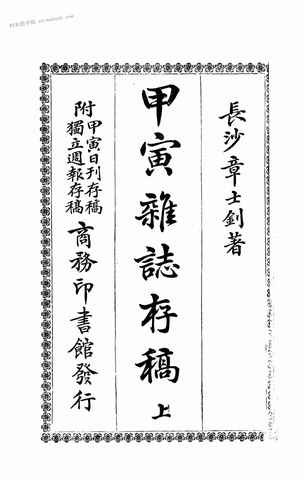 長沙章士釗著
甲寅雜誌存稿 上
附 甲寅日刊存稿
獨立週報存稿
商務印書館發行